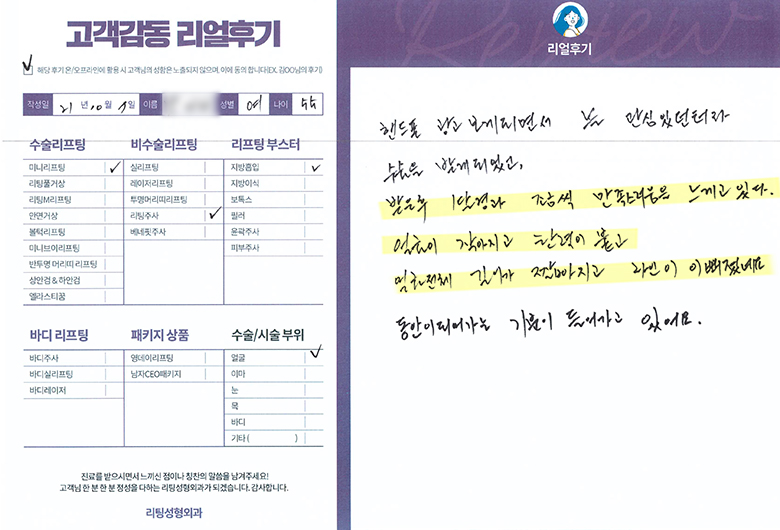 고객감동 리얼후기
해당 후기 온/오프라인에 활용 시 고객님의 성함은 노출되지 않으며, 이에 동의 합니다(EX. 김OO님의 후기)
작성일 21 년 10 월 1 일 이름 성별 여 나이
수술리프팅 비수술리프팅 리프팅 부스터
미니리프팅 ✓ 실리프팅 지방흡입 ✓
리팅풀거상 레이저리프팅 지방이식
리팅M리프팅 투명머리띠리프팅 보톡스
안면거상 리팅주사 ✓ 필러
볼턱리프팅 베네핏주사 윤곽주사
미니브이리프팅 피부주사
반투명 머리띠 리프팅
상안검 & 하안검
엘라스티꿈
바디 리프팅 패키지 상품 수술/시술 부위
바디주사 영데이리프팅 얼굴 ✓
바디실리프팅 남자CEO패키지 이마
바디레이저 눈
목
바디
기타 ( )
진료를 받으시면서 느끼신 점이나 칭찬의 말씀을 남겨주세요!
고객님 한 분 한 분 정성을 다하는 리팅성형외과가 되겠습니다. 감사합니다.
리팅성형외과
Review
리얼후기
핸드폰 광고 보게되면서 늘 관심있던터라
수술을 받게되었고,
받은후 1달경과 조금씩 만족스러움을 느끼고 있다.
얼굴이 작아지고 탄력이 붙고
얼굴전체 길이가 짧아지고 라인이 이뻐졌네요
동안이되어가는 기분이 들어가고 있어요.